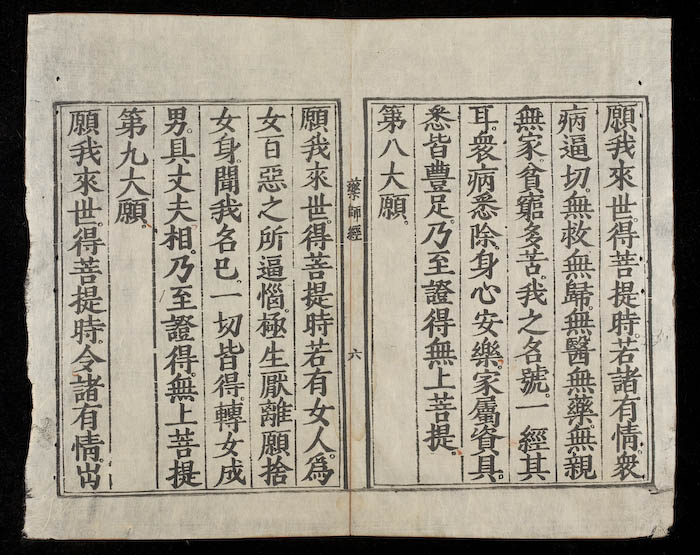 願我來世。得菩提時。若諸有情。衆
病逼切。無救無歸。無醫無藥。無親
無家。貧窮多苦。我之名號。一經其
耳。衆病悉除。身心安樂。家屬資具。
悉皆豊足。乃至證得無上菩提。
第八大願。
藥師經
六
願我來世。得菩提時若有女人。爲
女百惡之所逼惱。極生厭離願捨
女身。聞我名已。一切皆得。轉女成
男。具丈夫相。乃至證得。無上菩提
第九大願。
願我來世。得菩提時。令諸有情。岀